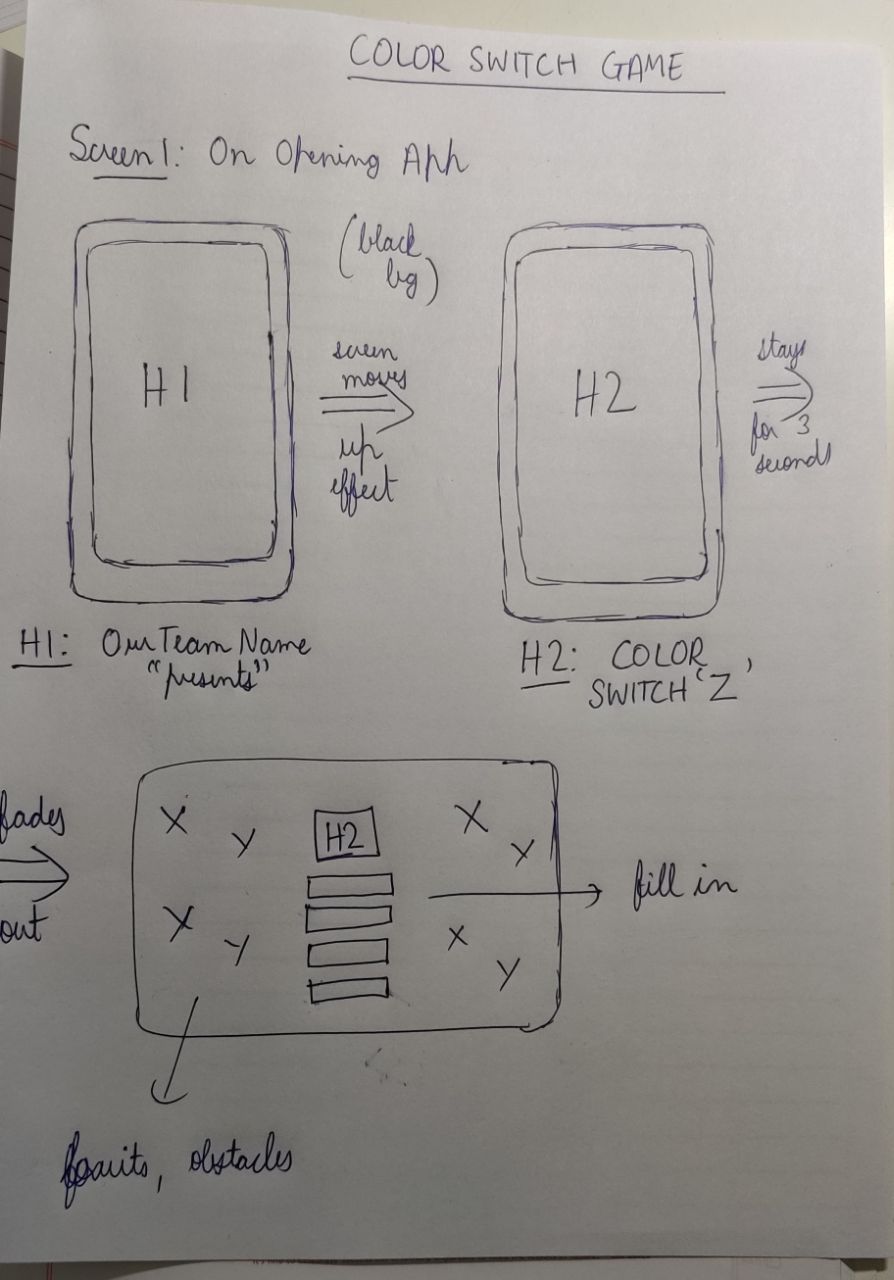 COLOR SWITCH GAME
Screen 1: On Opening App
(black
bg)
H1
screen
moves
up
effect
H2
stays
for 3
seconds
H1: Our Team Name
"presents"
H2: COLOR
SWITCH 'Z'
fades
out
X Y H2 X Y
X Y X Y
fill in
fruits, obstacles